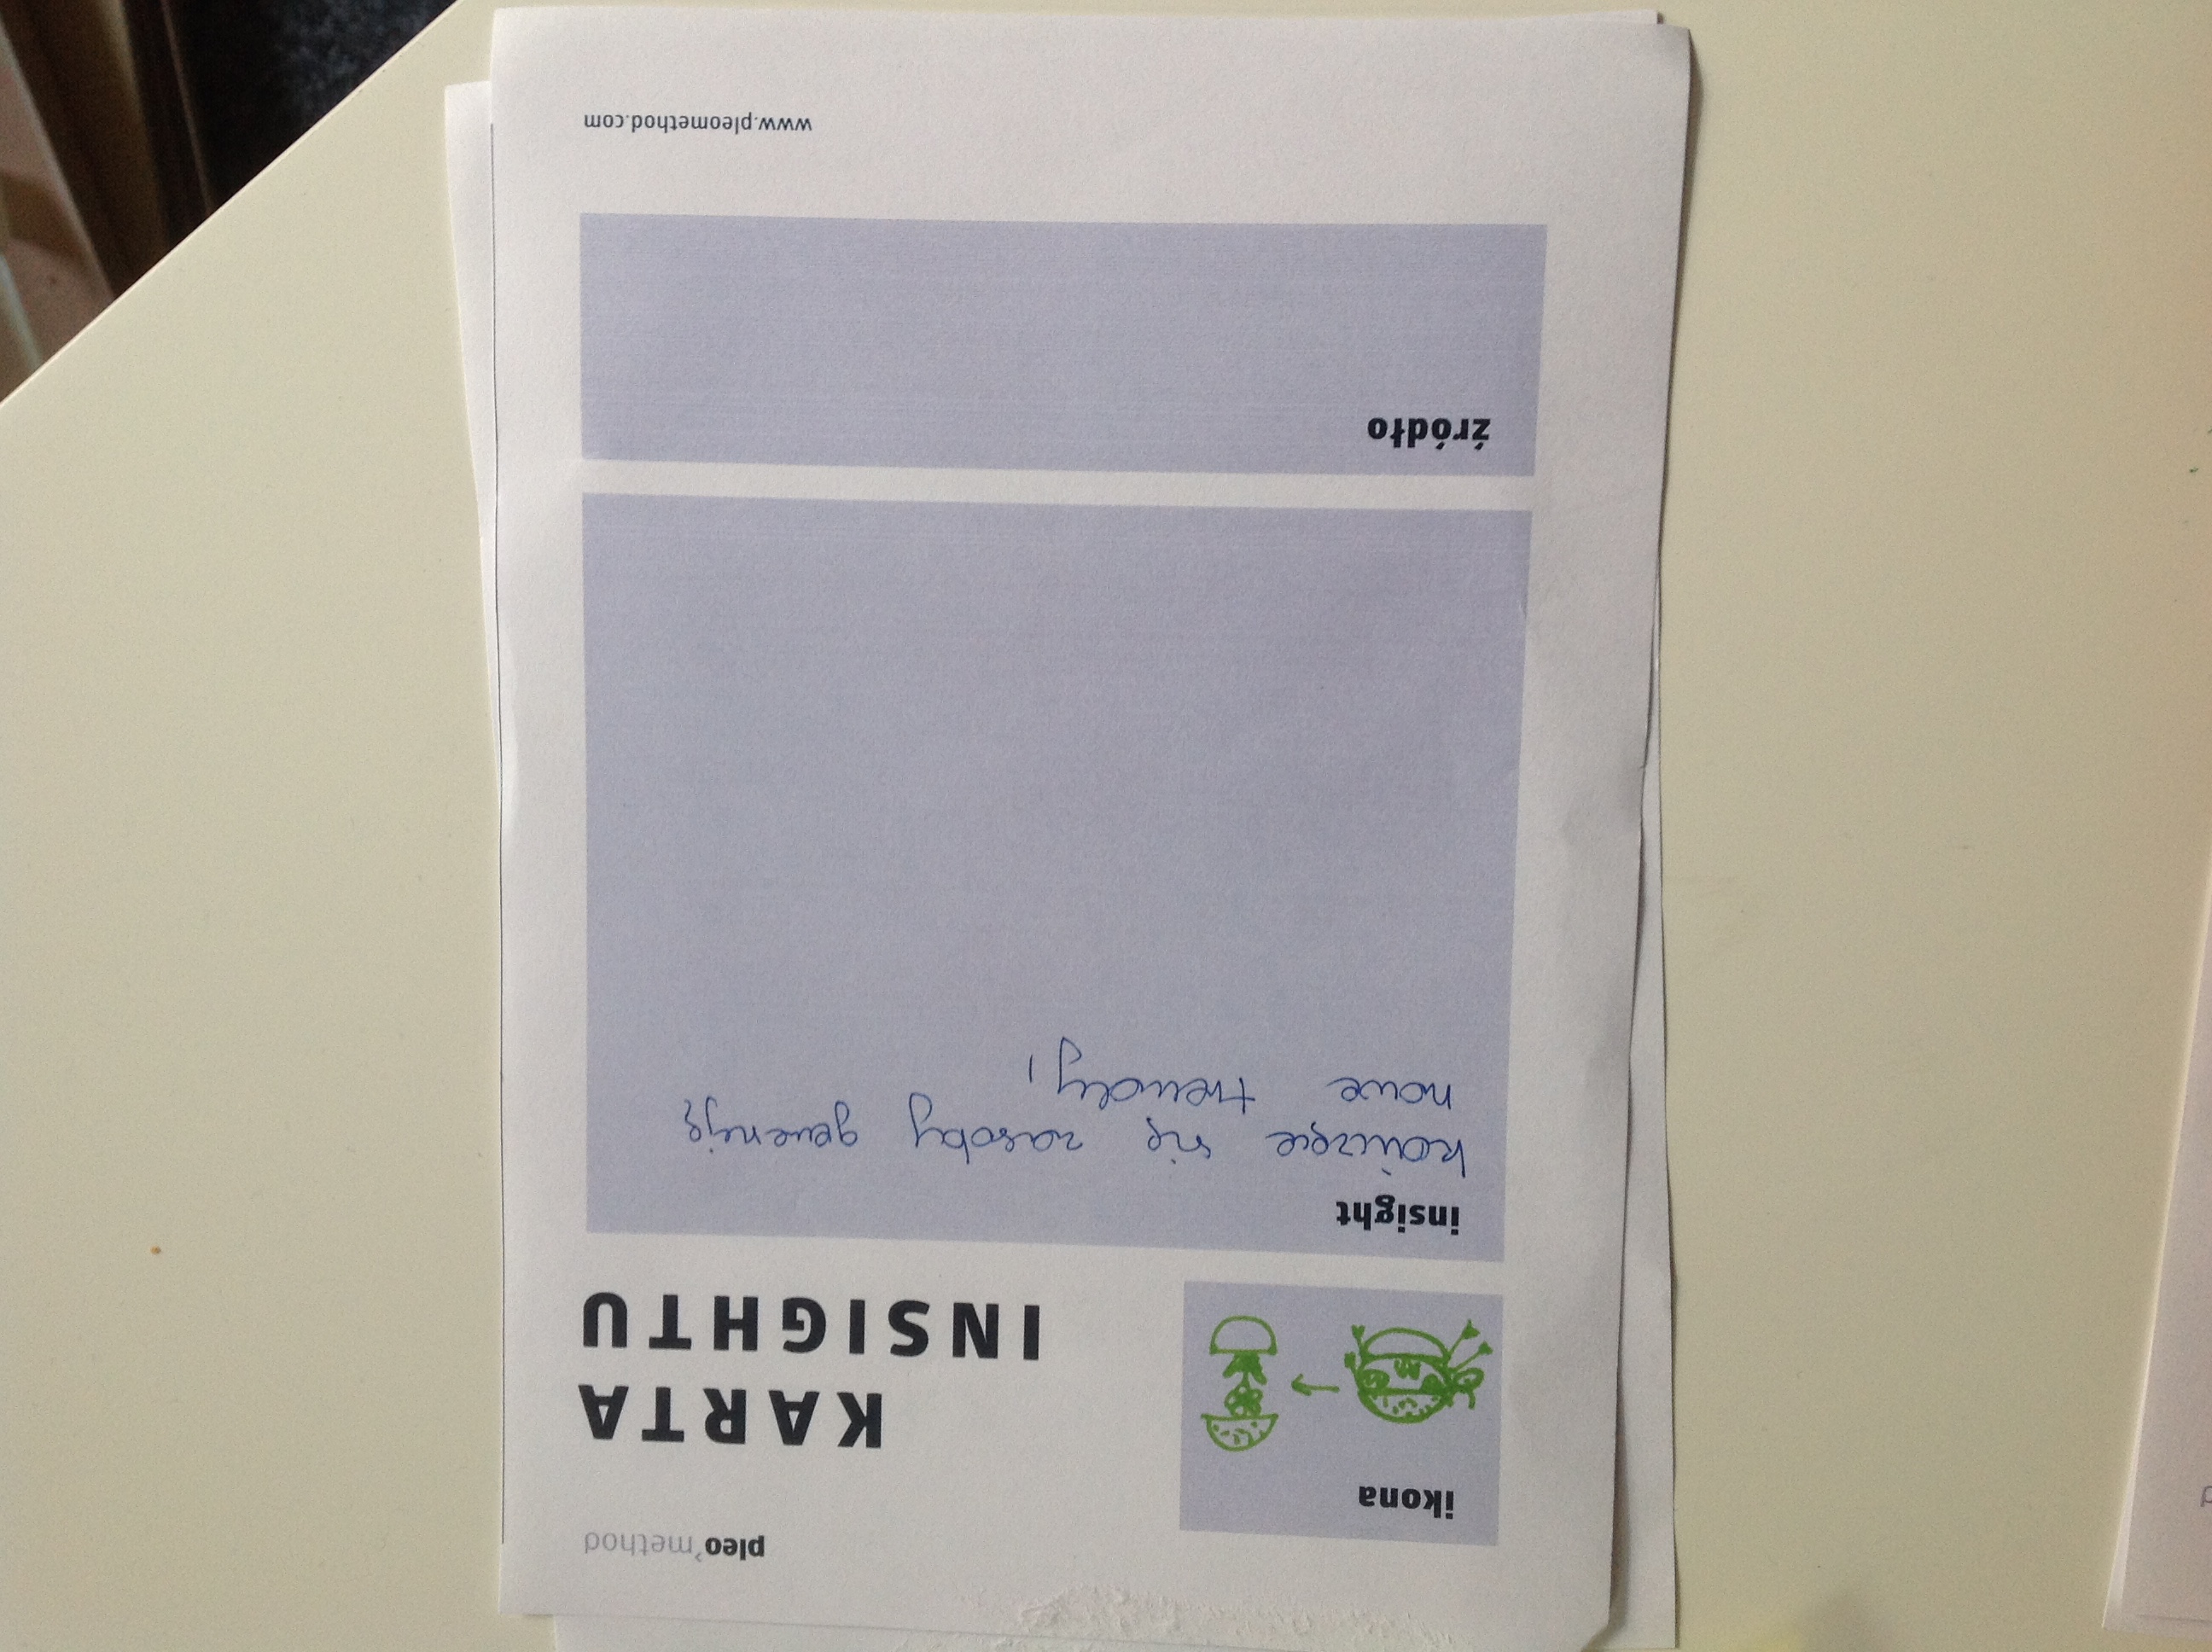 pleo'method
ikona
KARTA
INSIGHTU
insight
kończące się zasoby generują
nowe trendy,
źródło
www.pleomethod.com